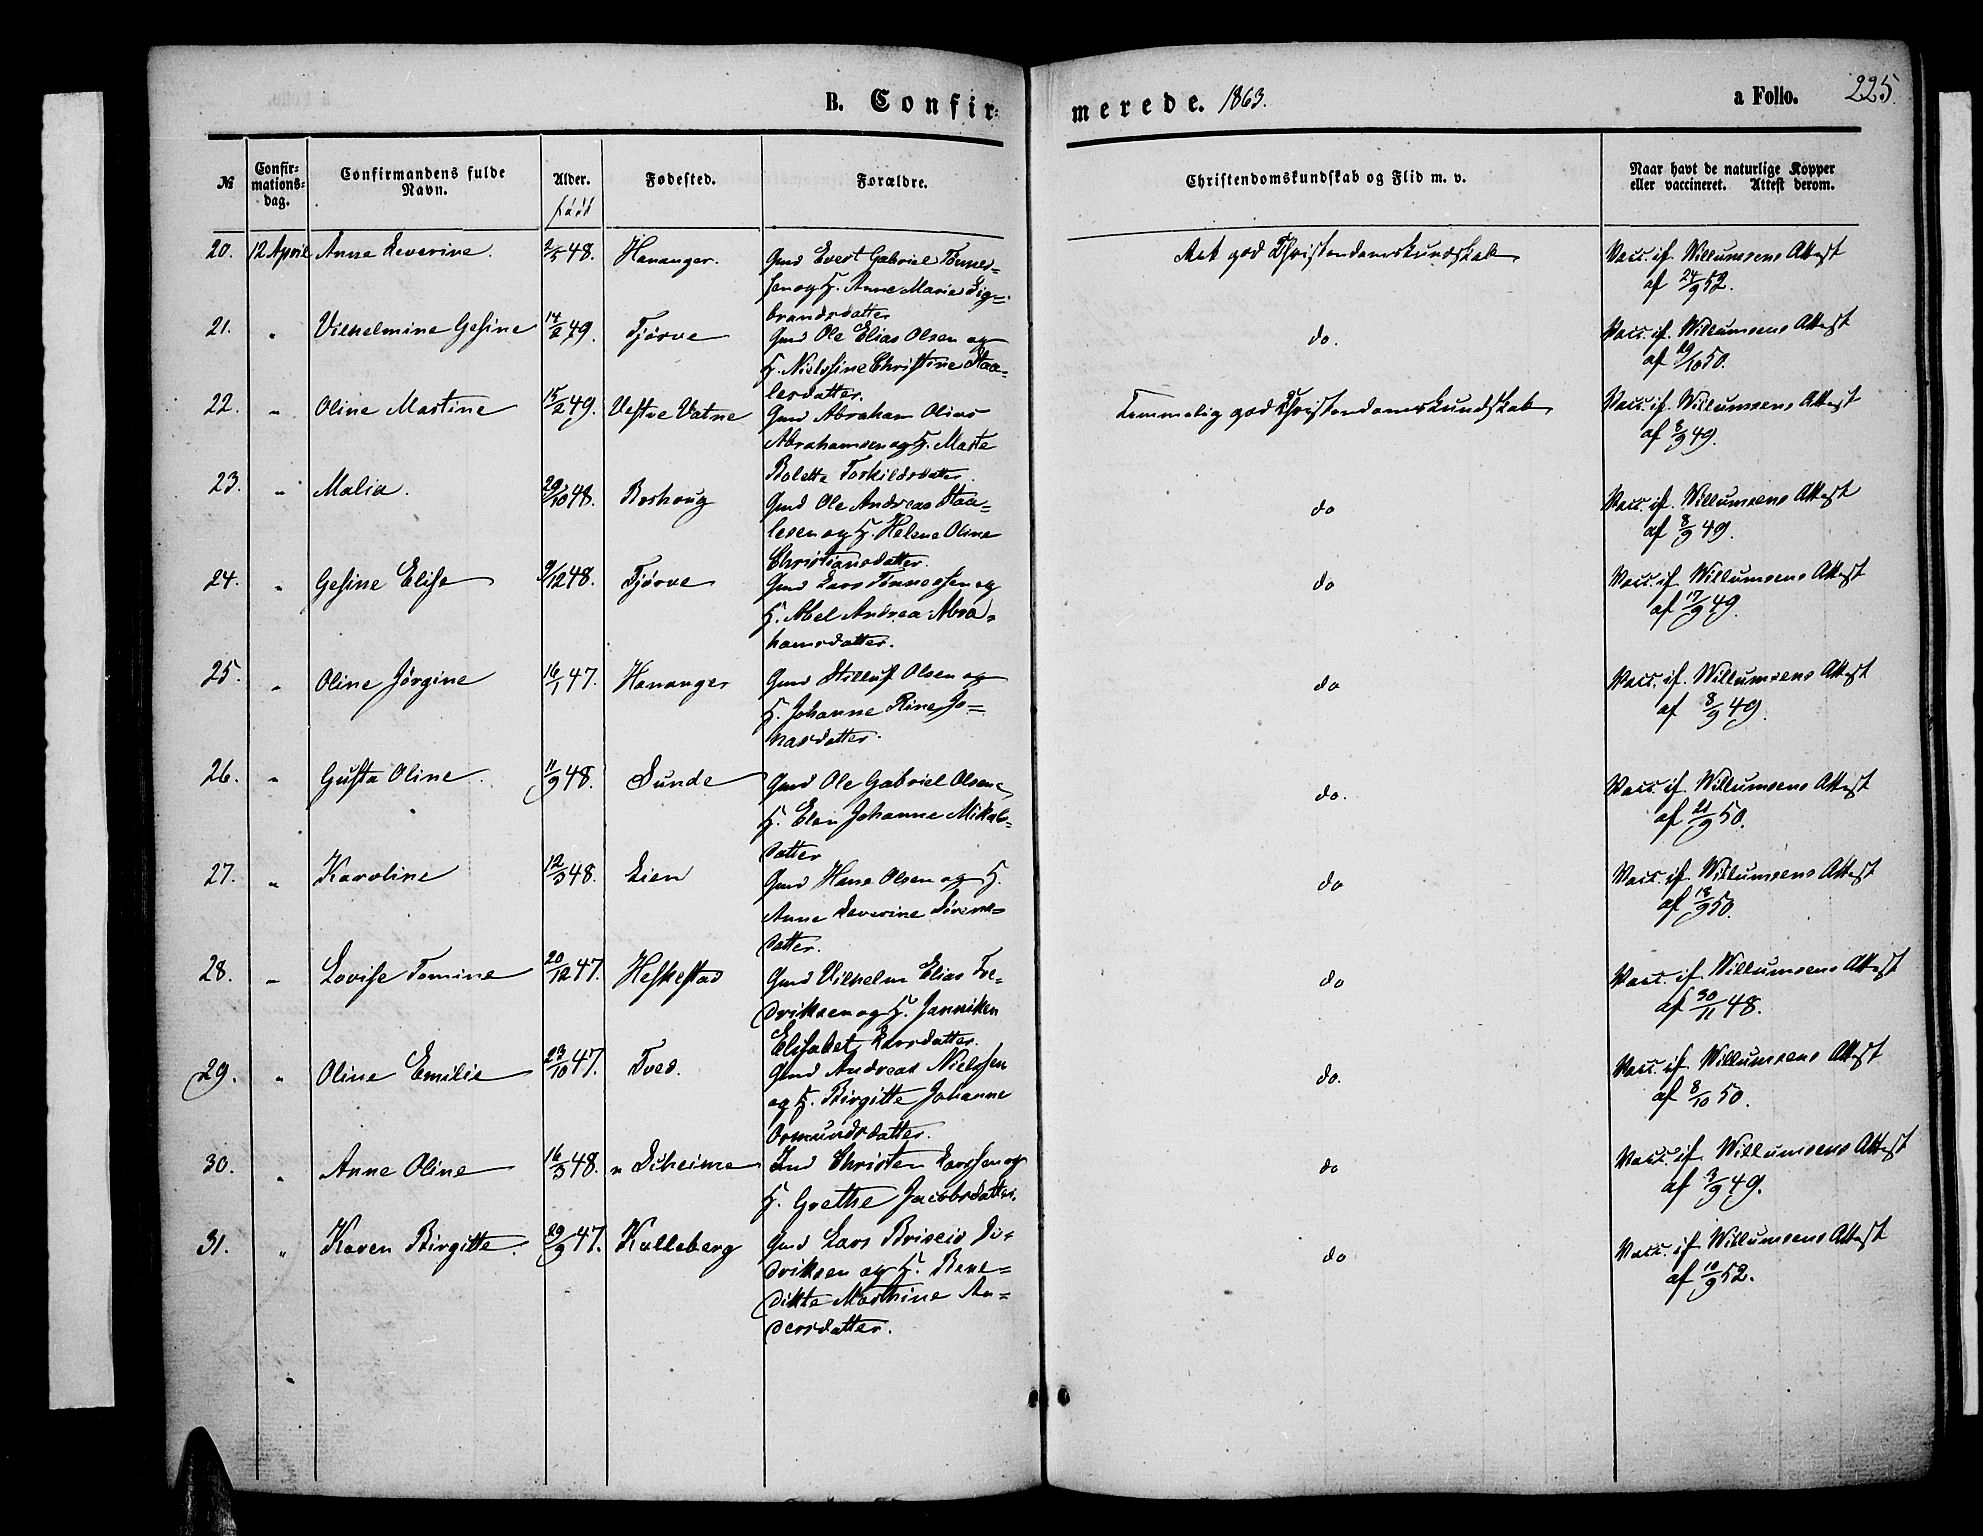 B. Confir-
merede. 1863.
a Folio. 225.
№
Confir-
mations-
dag.
Confirmandens fulde
Navn.
Alder.
født
Fødested.
Forældre.
Christendomskundskab og Flid m. v.
Naar havt de naturlige Kopper
eller vaccineret. Attest derom.
20. 12 April Anne Severine. 2/5 48. Hananger. Gmd Evert Gabriel Tønnes- Met god Christendomskundskab Vacc. if. Willumsens Attest
sen og H. Anne Marie Sig- af 24/9 52.
brandsdatter
21. " Vilhelmine Gesine 14/2 49. Tjørve Gmd Ole Elias Olsen og do. Vacc. if. Willumsens Attest
H. Nielsine Christine Staa- af 19/10 50.
lesdatter.
22. " Oline Martine 15/2 49. Vestre Vatne Gmd Abraham Olius Temmelig god Christendomskundskab Vacc. if. Willumsens Attest
Abrahamsen og H. Marte af 8/9 49.
Bolette Torkildsdatter.
23. " Malia. 29/10 48. Borhoug Gmd Ole Andreas Staa- do Vacc. if. Willumsens Attest
lesen og H. Helene Oline af 8/9 49.
Christiansdatter.
24. " Gesine Elise 9/12 48. Tjørve Gmd Lars Tønnessen og do Vacc. if. Willumsens Attest
H. Abel Andrea Abra- af 17/9 49.
hamsdatter.
25. " Oline Jørgine 16/1 47. Hananger Gmd Stilluf Olsen og do Vacc. if. Willumsens Attest
H. Johanne Rine Jo- af 8/9 49.
nasdatter.
26. " Gusta Oline. 11/9 48. Sunde Gmd Ole Gabriel Olsen do. Vacc. if. Willumsens Attest
H. Elen Johanne Mikals- af 21/9 50.
datter
27. " Karoline 12/3 48. Lien Gmd Hans Olsen og H. do Vacc. if. Willumsens Attest
Anne Severine Sørens- af 13/9 50.
datter.
28. " Lovise Tomine 20/12 47. Heskestad Gmd Vilhelm Elias Fre- do Vacc. if. Willumsens Attest
driksen og H. Janniken af 30/11 48.
Elisabet Larsdatter.
29. " Oline Emilie 23/10 47. Tved. Gmd Andreas Nielssen do. Vacc. if. Willumsens Attest
og H. Birgitte Johanne af 8/10 50.
Osmundsdatter.
30. " Anne Oline 16/3 48. n Diheime Ind Christen Larssen og do Vacc. if. Willumsens Attest
H. Grethe Jacobsdatter. af 3/9 49.
31. " Karen Birgitte. 29/9 47. Kalleberg Gmd Lars Briseid Di- do Vacc. if. Willumsens Attest
driksen og H. Bene- af 10/9 52.
dikte Marthine An-
dersdatter.